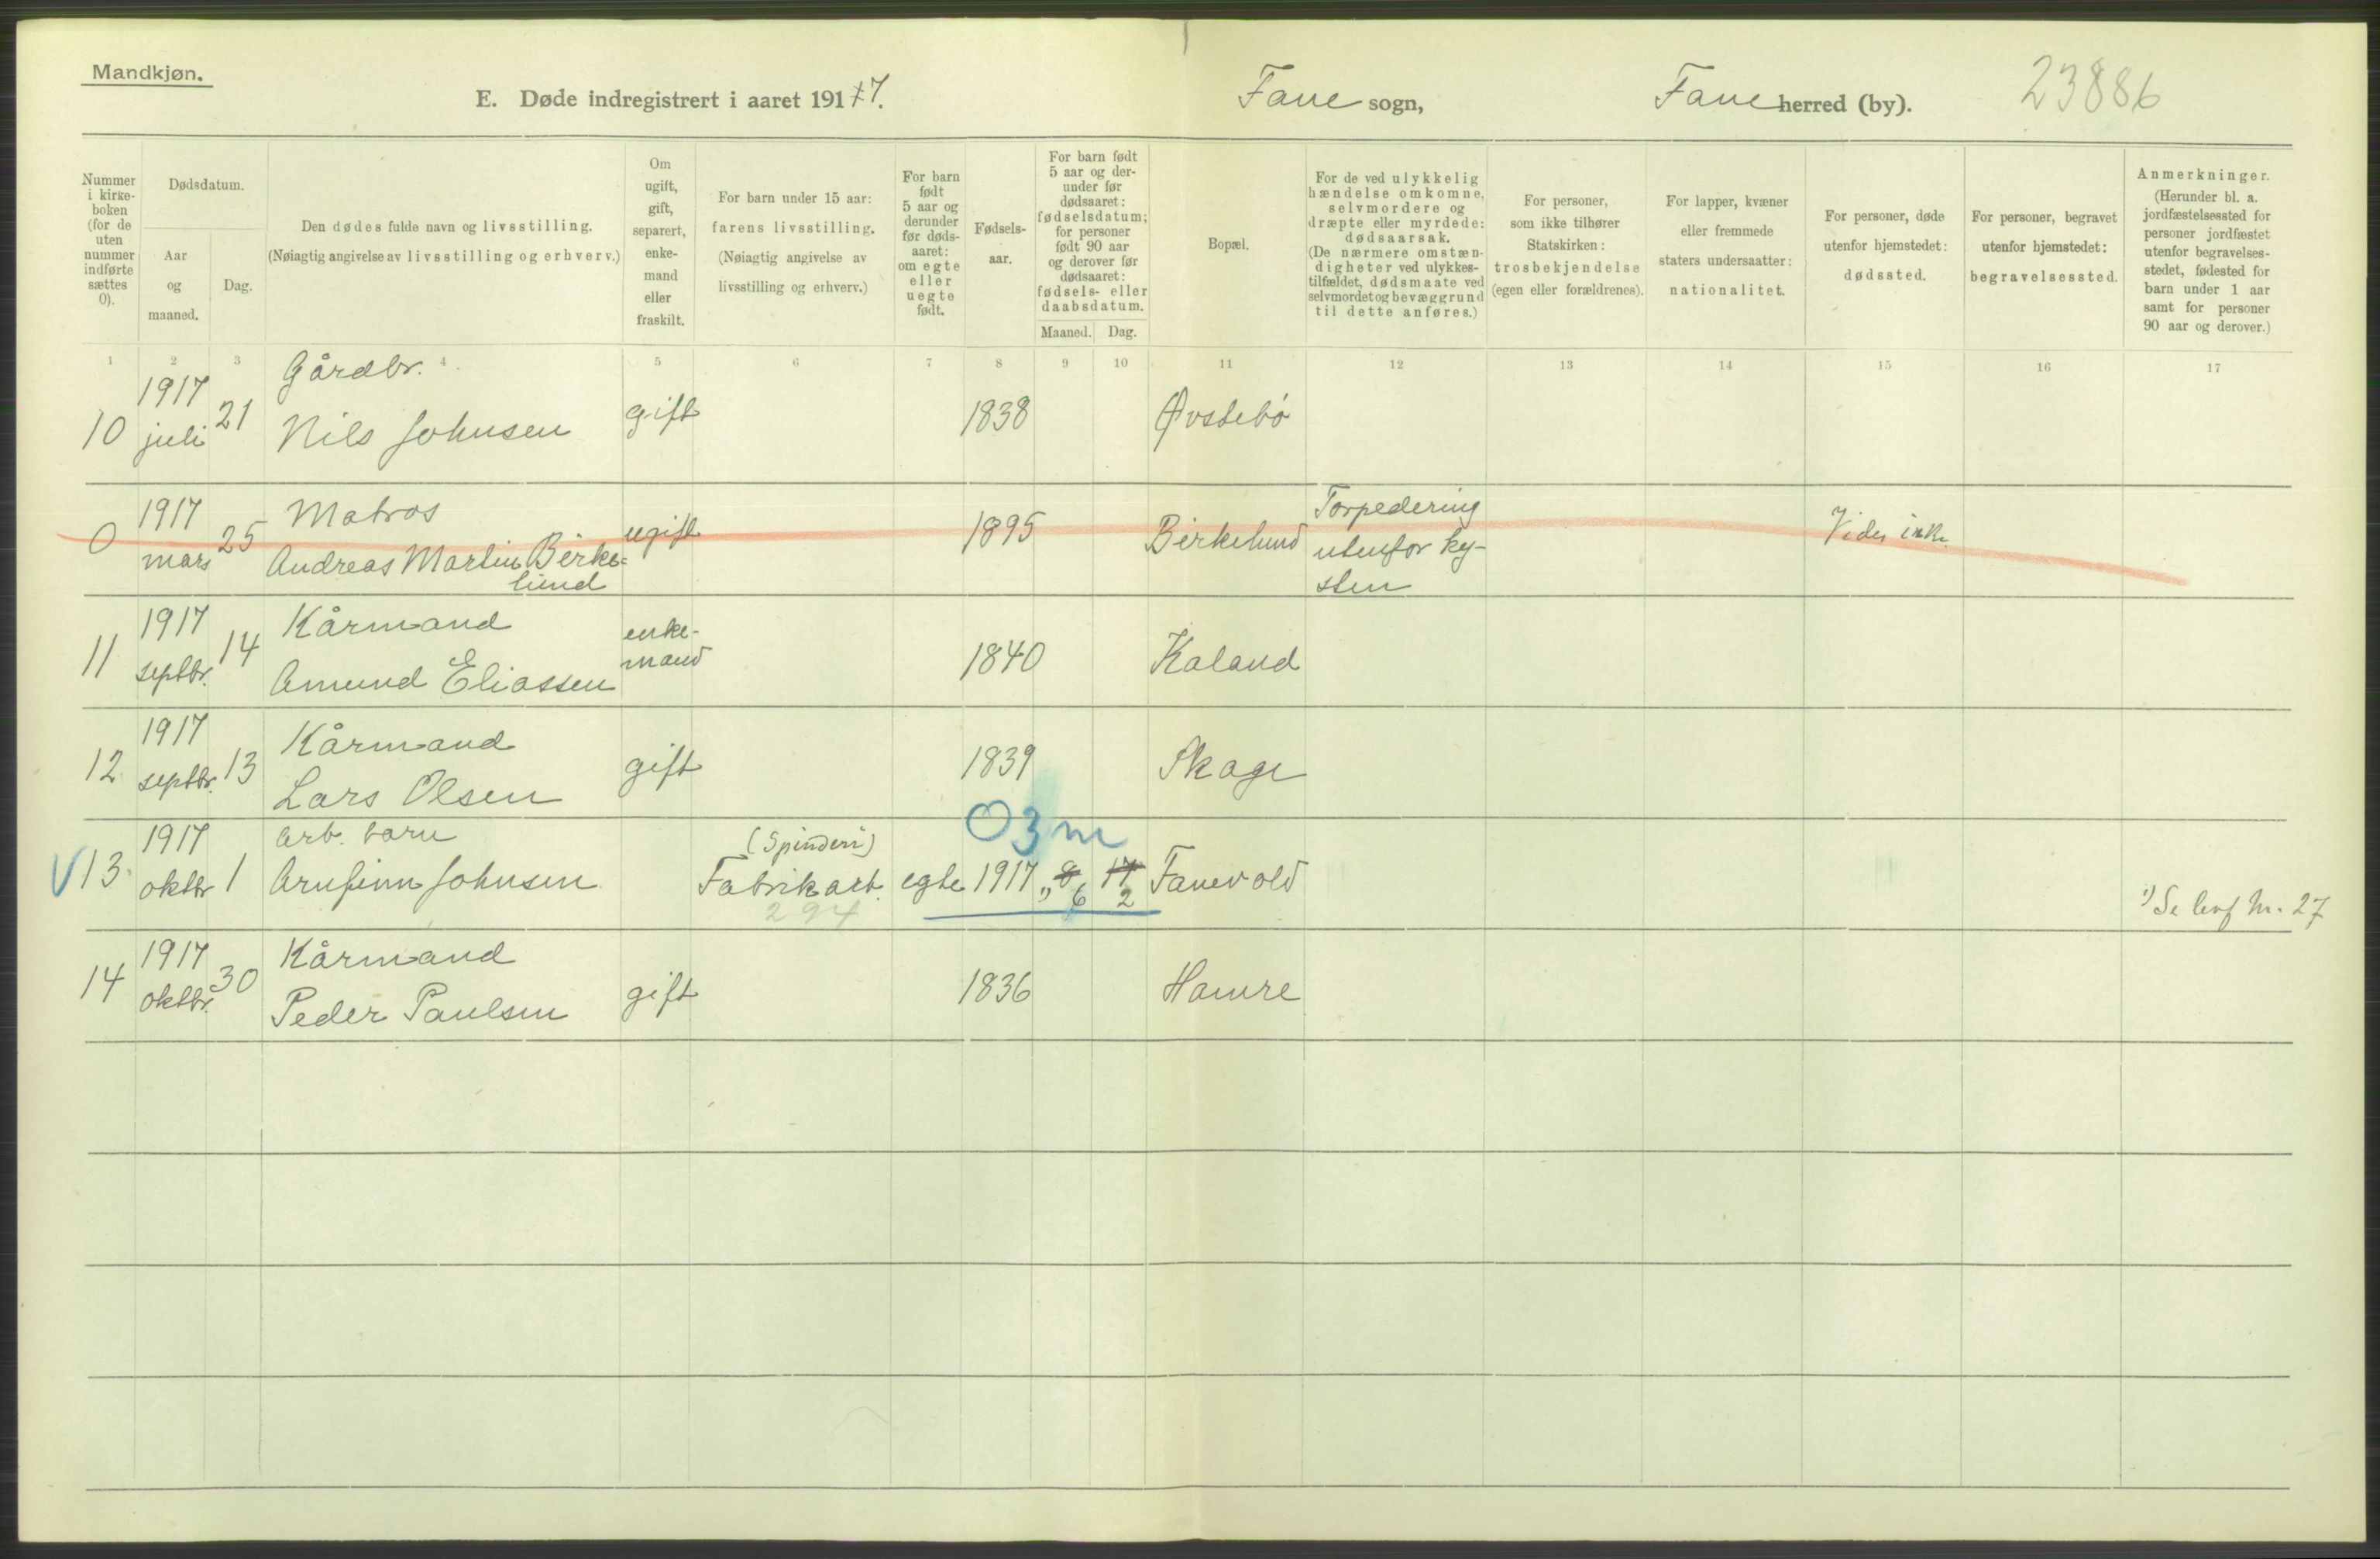 Mandkjøn.
E. Døde indregistrert i aaret 1917.
Fane sogn,
Fane herred (by).
23886
Nummer i kirkeboken (for de uten nummer indførte sættes 0).
Dødsdatum.
Aar og maaned.
Dag.
Den dødes fulde navn og livsstilling.
(Nøiagtig angivelse av livsstilling og erhverv.)
Om ugift, gift, separert, enkemand eller fraskilt.
For barn under 15 aar: farens livsstilling.
(Nøiagtig angivelse av livsstilling og erhverv.)
For barn født 5 aar og derunder før dødsaaret: om egte eller uegte født.
Fødselsaar.
For barn født 5 aar og derunder før dødsaaret: fødselsdatum; for personer født 90 aar og derover før dødsaaret: fødsels- eller daabsdatum.
Maaned. Dag.
Bopæl.
For de ved ulykkelig hændelse omkomne, selvmordere og dræpte eller myrdede: dødsaarsak.
(De nærmere omstændigheter ved ulykkestilfældet, dødsmaate ved selvmordet og bevæggrund til dette anføres.)
For personer, som ikke tilhører Statskirken: trosbekjendelse (egen eller forældrenes).
For lapper, kvæner eller fremmede staters undersaatter: nationalitet.
For personer, døde utenfor hjemstedet: dødssted.
For personer, begravet utenfor hjemstedet: begravelsessted.
Anmerkninger.
(Herunder bl. a. jordfæstelsessted for personer jordfæstet utenfor begravelsesstedet, fødested for barn under 1 aar samt for personer 90 aar og derover.)
1 2 3 4 5 6 7 8 9 10 11 12 13 14 15 16 17
10 1917 juli 21 Gårdbr. Nils Johnsen gift 1838 Øvstebö
0 1917 mars 25 Matros Andreas Martin Birke=lund ugift 1895 Birkelund Torpedering utenfor ky-sten Vides ikke
11 1917 septbr. 14 Kårmand Amund Eliassen enke-mand 1840 Kaland
12 1917 septbr. 13 Kårmand Lars Olsen gift 1839 Skage
03m
V 13 1917 oktbr 1 Arb. barn Arnfinn Johnsen (Spinderi) Fabrikarb. 294 egte 1917 „ 8 6 17 2 Fanevold ¹) Se levf Nr. 27
14 1917 oktbr. 30 Kårmand Peder Paulsen gift 1836 Hamre